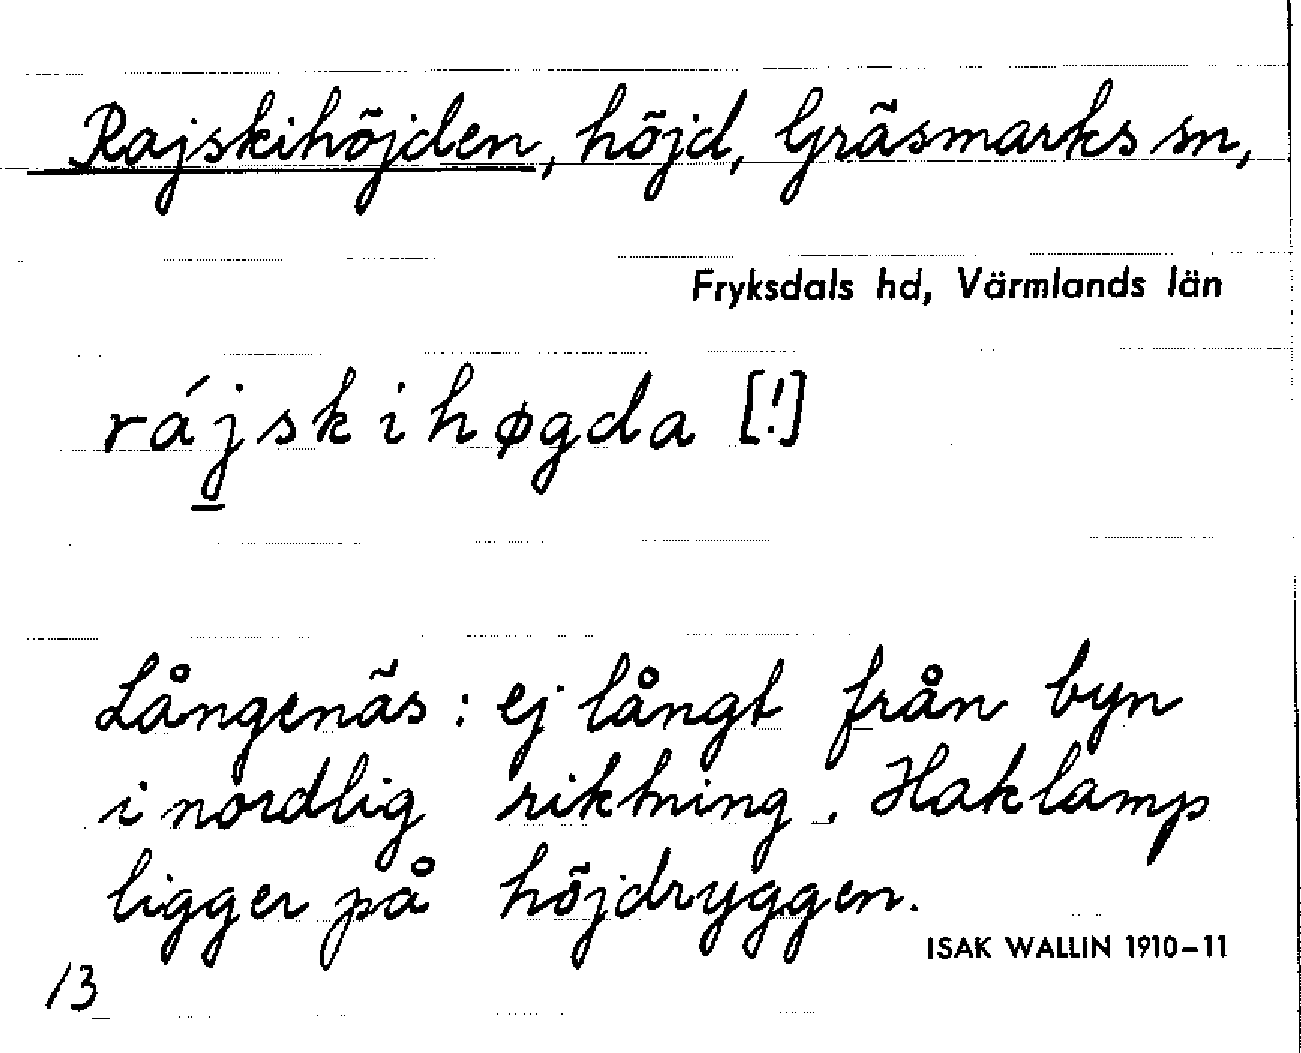 Rajskihöjden, höjd, Gräsmarks sn,
Fryksdals hd, Värmlands län
rájskihøgda [!]
Långenäs: ej långt från byn
i nordlig riktning. Haklamp
ligger på höjdryggen.
ISAK WALLIN 1910-11
13